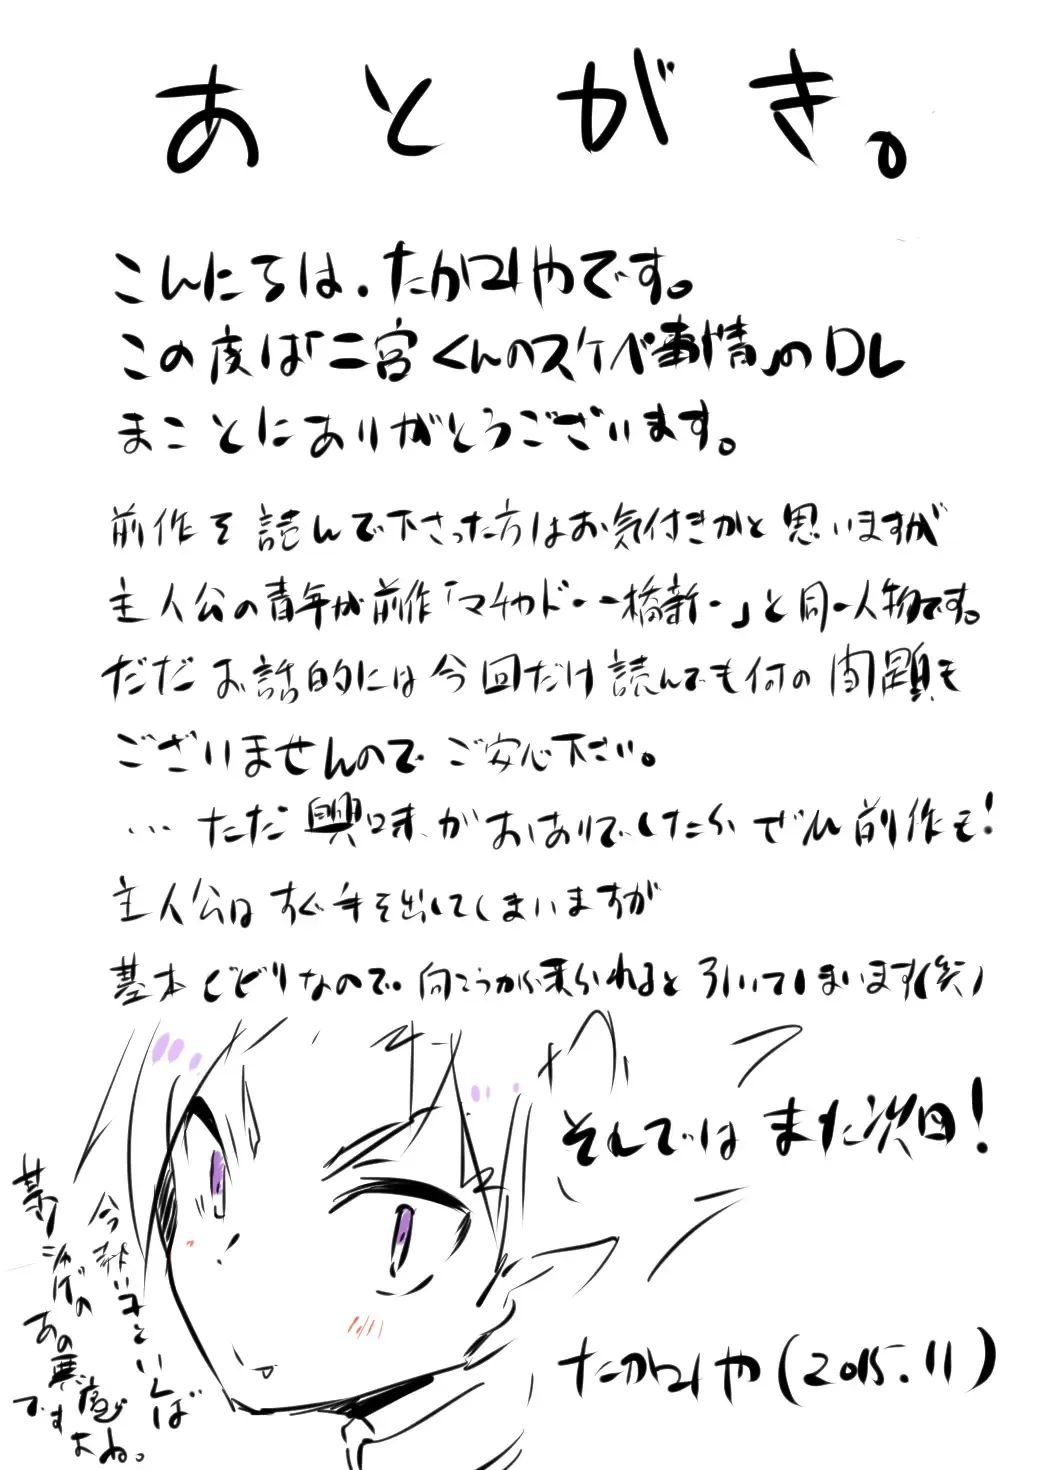 あとがき。
こんにちは、たかつやです。
この度は「二宮くんのスケベ事情」のDL
まことにありがとうございます。
前作を読んで下さった方はお気付きかと思いますが
主人公の青年が前作「マチカドー一橋新一」と同一人物です。
だだお話的には今回だけ読んでも何の問題も
ございませんのでご安心下さい。
…ただ興味がおありでしたらぜひ前作も!
主人公はすぐ手を出してしまいますが
基本ビビリなので。向こうから来られると引いてしまいます(笑)
それではまた次回!
今熱い子といえば
某シャゲのあの悪魔ですよね。
たかつや(2015.11)